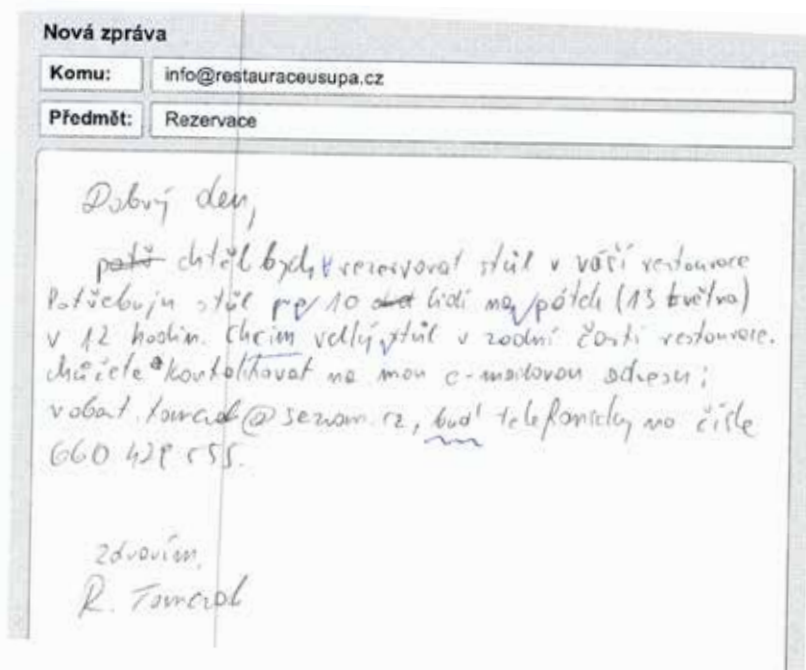 Nová zpráva
Komu: info@restauraceusupa.cz
Předmět: Rezervace
Dobrý den,
chtěl bych rezervovat stůl v váší restaurace
Potřebuju stůl pro 10 lidí na pátek (13 května)
v 12 hodin. Chcim velký stůl v zadní časti restaurace.
můžete kontaktovat na mou e-mailovou adresu:
@seznam.cz, buď telefonicky na čísle
660
zdravím,
R.